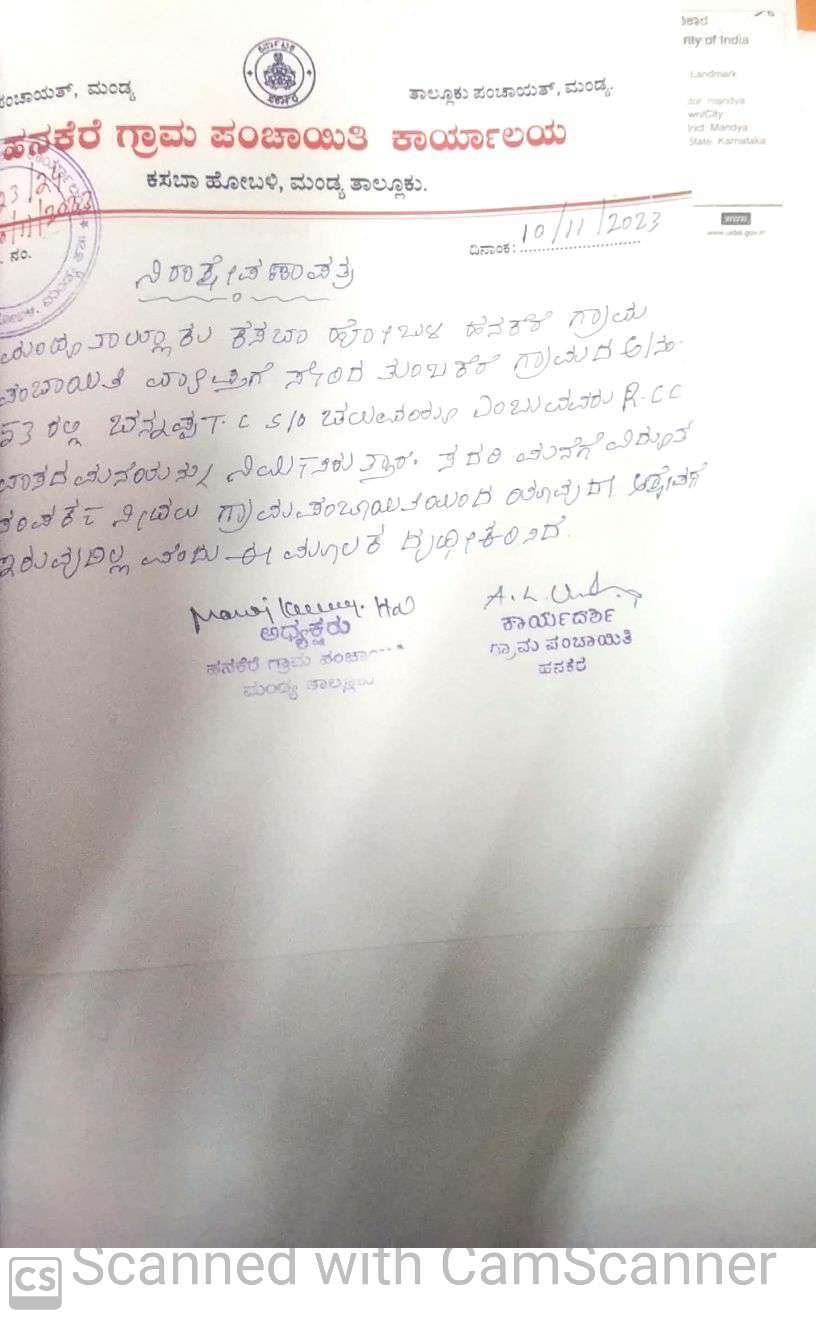 ead
rity of India
Landmark
tor mandya
wn/City
trict Mandya
State Karnataka
www
www.uidai.gov.in
ಪಂಚಾಯತ್, ಮಂಡ್ಯ
ತಾಲ್ಲೂಕು ಪಂಚಾಯತ್, ಮಂಡ್ಯ.
ಹನಕೆರೆ ಗ್ರಾಮ ಪಂಚಾಯಿತಿ ಕಾರ್ಯಾಲಯ
ಕಸಬಾ ಹೋಬಳಿ, ಮಂಡ್ಯ ತಾಲ್ಲೂಕು.
ನಂ.
ದಿನಾಂಕ: 10/11/2023
ನಿರಾಕ್ಷೇಪಣಾಪತ್ರ
ಮಂಡ್ಯ ತಾಲ್ಲೂಕು ಕಸಬಾ ಹೋಬಳಿ ಹನಕೆರೆ ಗ್ರಾಮ
ಪಂಚಾಯಿತಿ ವ್ಯಾಪ್ತಿಗೆ ಸೇರಿದ ತುಂಬಕೆರೆ ಗ್ರಾಮದ
53 ರಲ್ಲಿ T.C S/o ಎಂಬುವವರು R.CC
ಮನೆಯನ್ನು ಸದರಿ ಮನೆಗೆ ವಿದ್ಯುತ್
ಸಂಪರ್ಕ ನೀಡಲು ಗ್ರಾಮಪಂಚಾಯಿತಿಯಿಂದ ಯಾವುದೇ ಆಕ್ಷೇಪಣೆ
ಇರುವುದಿಲ್ಲ ವೆಂದು ಈ ಮೂಲಕ ದೃಢೀಕರಿಸಿದೆ.
ಅಧ್ಯಕ್ಷರು
ಹನಕೆರೆ ಗ್ರಾಮ
ಮಂಡ್ಯ
ಕಾರ್ಯದರ್ಶಿ
ಗ್ರಾಮ ಪಂಚಾಯಿತಿ
ಹನಕೆರೆ
CS Scanned with CamScanner